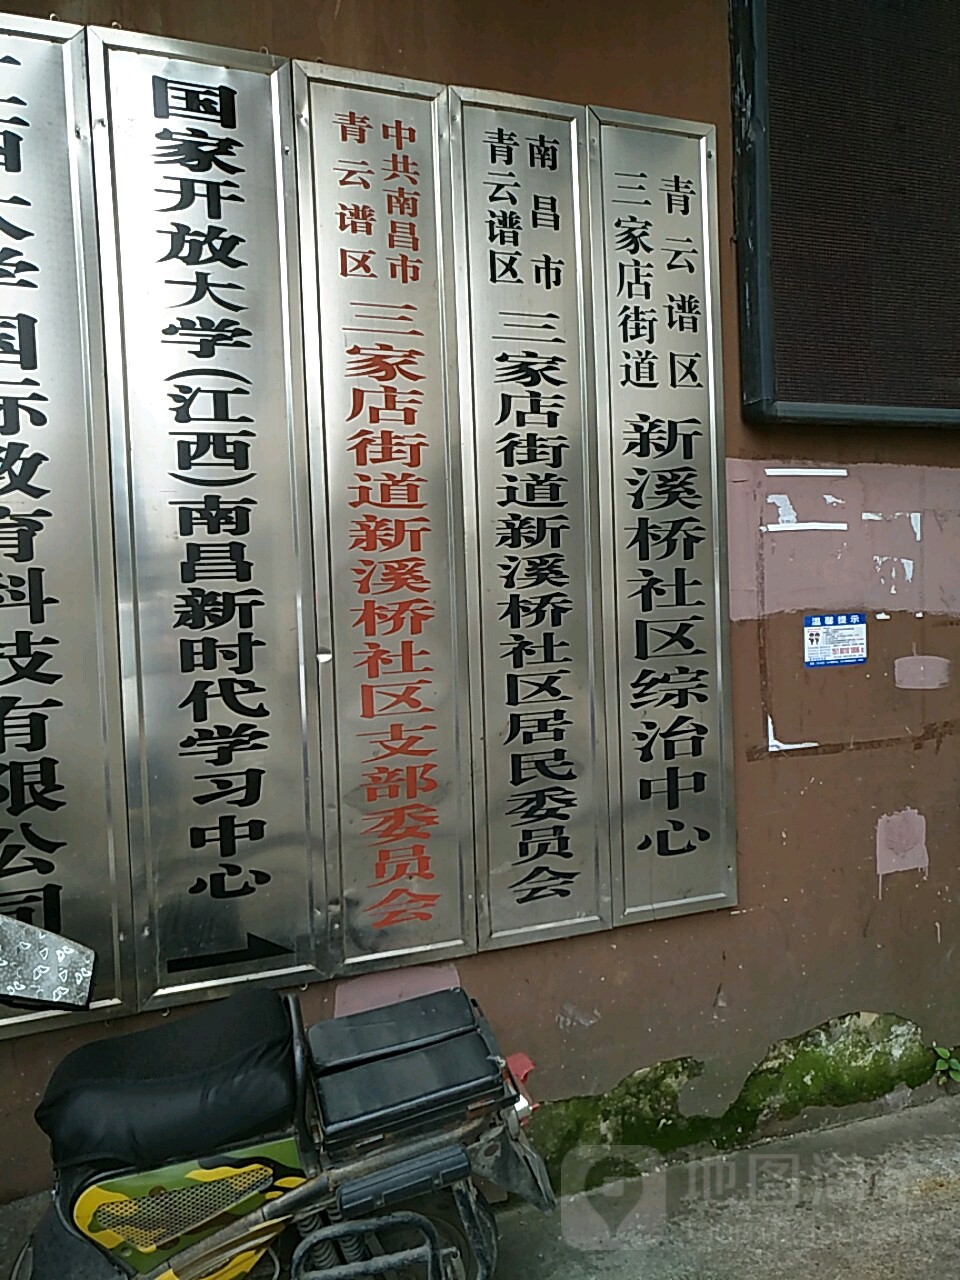 江西大学国际教育科技有限公司
国家开放大学(江西)南昌新时代学习中心
中共南昌市
青云谱区
三家店街道新溪桥社区支部委员会
南昌市
青云谱区
三家店街道新溪桥社区居民委员会
青云谱区
三家店街道
新溪桥社区综治中心
温馨提示